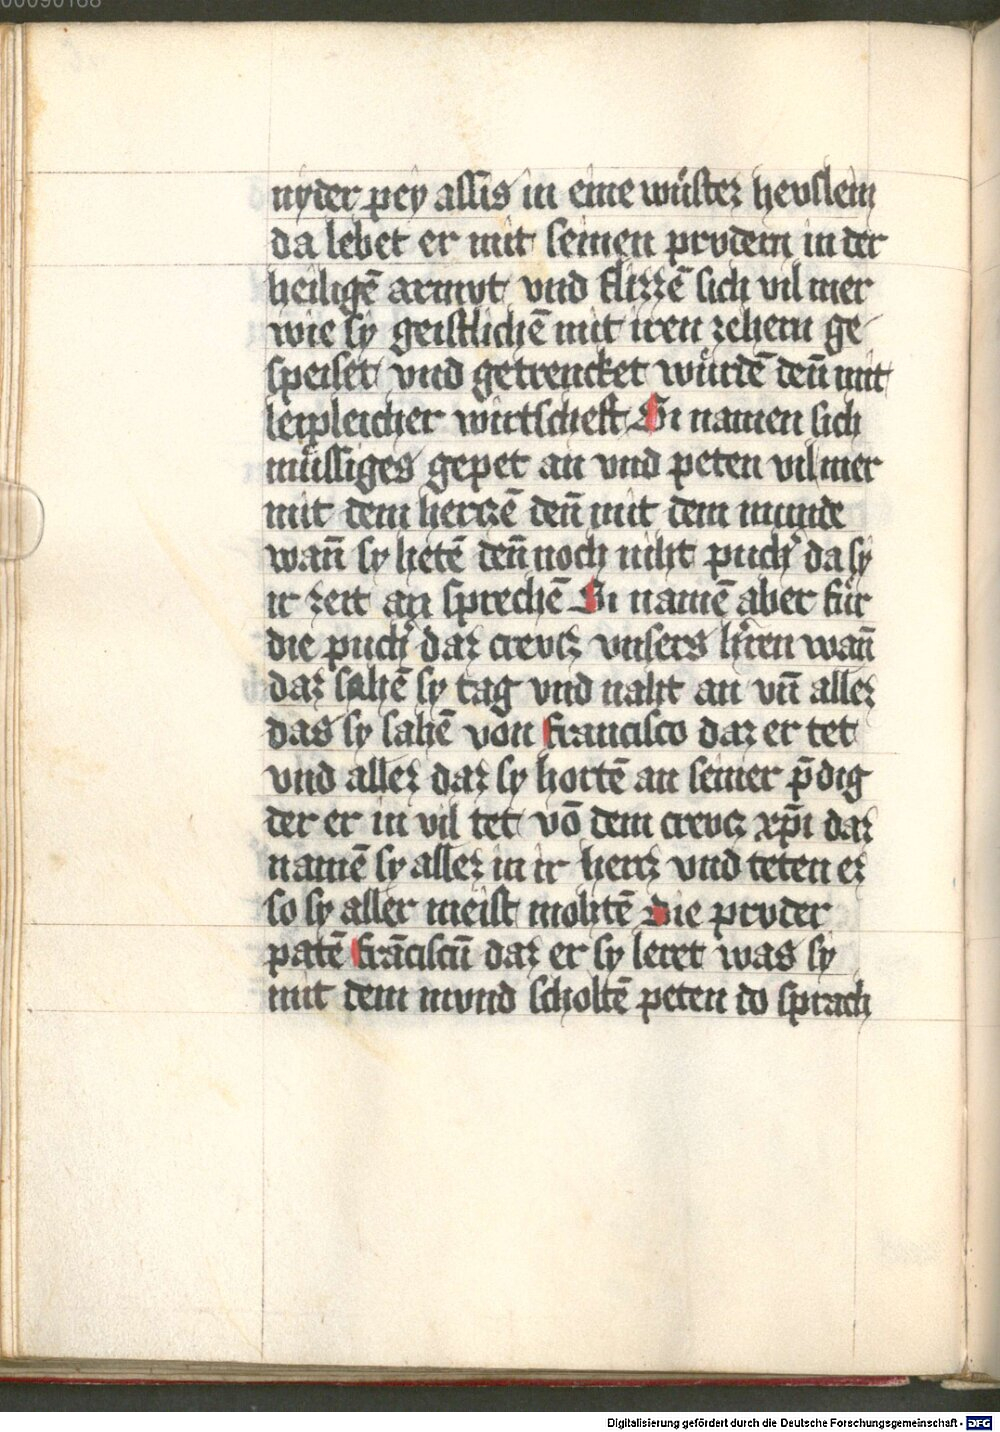 nyder pey assis in eine wüstez hevslein
da lebet er mit seinen prvdern in der
heiligē armvt vnd flizzē sich vil mer
wie sy geistlichē mit iren zehern ge
speiset vnd getrencket würdē deñ mit
leipleicher wirtscheft Si namen sich
müssiges gepet an vnd peten vil mer
mit dem hertzē deñ mit dem munde
wañ sy hetē deñ noch niht puch' da sy
ir zeit an sprechē Si namē aber für
die puch' daz crevcz vnsers h'ren wañ
daz sahē sy tag vnd naht an vñ allez
das sy sahē von francisco daz er tet
vnd allez daz sy hortē an seiner p̄dig
der er in vil tet vō dem crevcz xp̄i daz
namē sy allez in ir hercz vnd teten ez
so sy aller meist mohtē Die prvder
patē frāciscū daz er sy leret was sy
mit dem mvnd scholtē peten do sprach
Digitalisierung gefördert durch die Deutsche Forschungsgemeinschaft - DFG